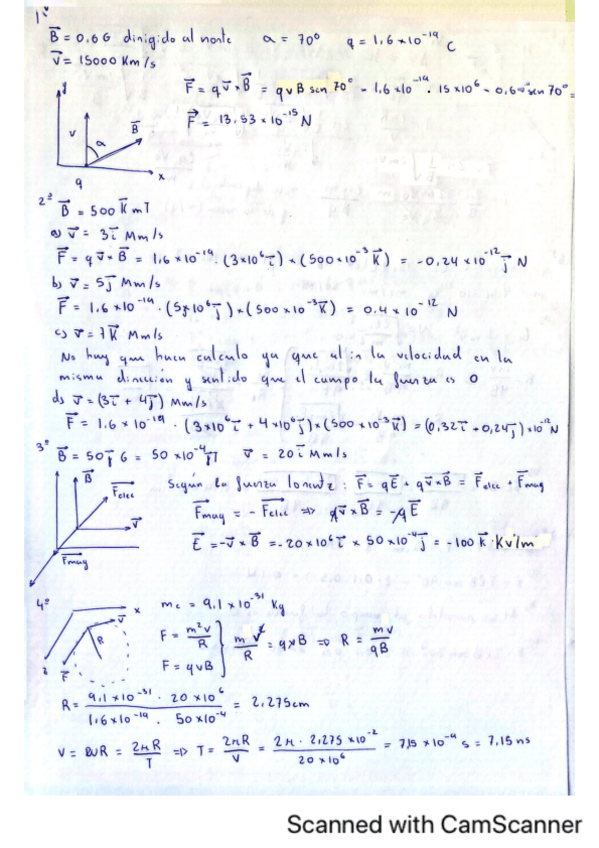 1º
B⃗ = 0.6 G dirigido al norte α = 70º q = 1,6×10⁻¹⁹ C
V⃗ = 15000 Km/s
F⃗ = q v⃗ × B⃗ = q v B sen 70º = 1.6×10⁻¹⁹ · 15×10⁶ - 0,6 sen 70º =
F⃗ = 13,53×10⁻¹⁵ N
y
v
α
B⃗
x
q
2º B⃗ = 500 k⃗ mT
a) v⃗ = 3i⃗ Mm/s
F⃗ = q v⃗ × B⃗ = 1,6×10⁻¹⁹ · (3×10⁶ i⃗) × (500×10⁻³ k⃗) = -0,24×10⁻¹² j⃗ N
b) v⃗ = 5j⃗ Mm/s
F⃗ = 1.6×10⁻¹⁹ · (5×10⁶ j⃗) × (500×10⁻³ k⃗) = 0.4×10⁻¹² N
c) v⃗ = 7k⃗ Mm/s
No hay que hacer calculo ya que al ir la velocidad en la
misma direccion y sentido que el campo la fuerza es 0
d) v⃗ = (3i⃗ + 4j⃗) Mm/s
F⃗ = 1.6×10⁻¹⁹ · (3×10⁶ i⃗ + 4×10⁶ j⃗) × (500×10⁻³ k⃗) = (0,32i⃗ - 0,24j⃗)×10⁻¹² N
3º B⃗ = 50j⃗ G = 50×10⁻⁴ j⃗ T v⃗ = 20i⃗ Mm/s
B⃗
F⃗elec
v⃗
F⃗mag
Según la fuerza lorentz: F⃗ = qE⃗ + qv⃗×B⃗ = F⃗elec + F⃗mag
F⃗mag = - F⃗elec ⇒ qv⃗×B⃗ = -qE⃗
E⃗ = -v⃗ × B⃗ = -20×10⁶ i⃗ × 50×10⁻⁴ j⃗ = -100 k⃗ · Kv/m
4º
x
v⃗
R
z
F⃗
me = 9,1×10⁻³¹ Kg
F = m²v/R
F = qvB
m v²/R = qvB ⇒ R = mv/qB
R = 9,1×10⁻³¹ · 20×10⁶ / 1,6×10⁻¹⁹ · 50×10⁻⁴ = 2,275cm
V = WR = 2πR/T ⇒ T = 2πR/V = 2π · 2,275×10⁻² / 20×10⁶ = 7,15×10⁻⁹ s = 7,15 ns
Scanned with CamScanner